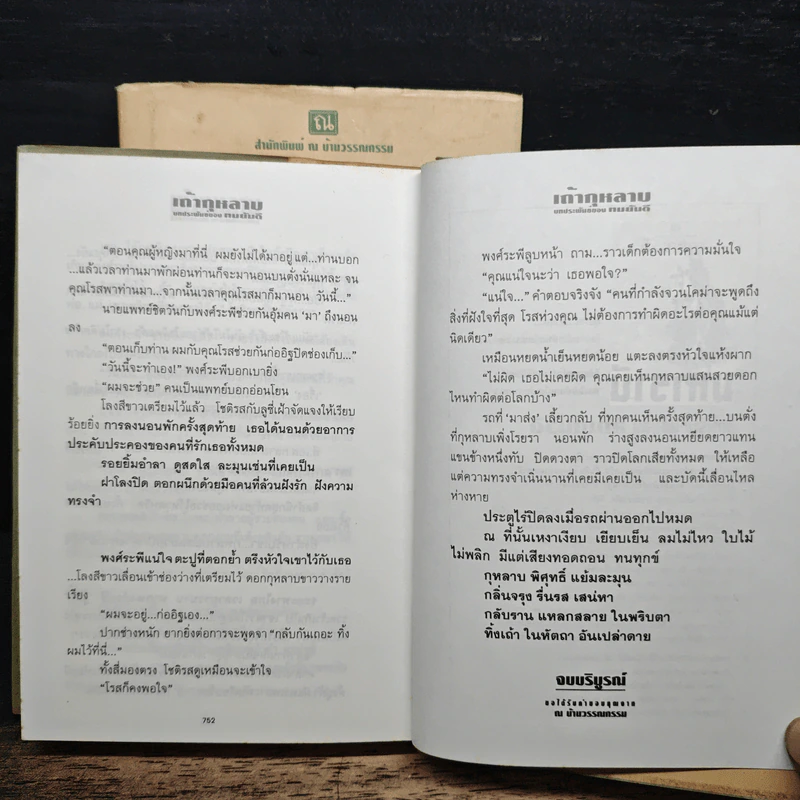 ณ
สำนักพิมพ์ ณ บ้านวรรณกรรม
เถ้ากุหลาบ
บทประพันธ์ของ ทมยันตี
“ตอนคุณผู้หญิงมาที่นี่ ผมยังไม่ได้มาอยู่ แต่...ท่านบอก
...แล้วเวลาท่านมาพักผ่อนท่านก็จะมานอนบนตั่งนั่นแหละ จน
คุณโรสพาท่านมา...จากนั้นเวลาคุณโรสมาก็มานอน วันนี้...”
นายแพทย์ชิตวันกับพงศ์ระพีช่วยกันอุ้มคน ‘มา’ ถึงนอน
ลง
“ตอนเก็บท่าน ผมกับคุณโรสช่วยกันก่ออิฐปิดช่องเก็บ...”
“วันนี้จะทำเอง!” พงศ์ระพีบอกเบายิ่ง
“ผมจะช่วย” คนเป็นแพทย์บอกอ่อนโยน
โลงสีขาวเตรียมไว้แล้ว โชติรสกับลูซี่เฝ้าจัดแจงให้เรียบ
ร้อยยิ่ง การลงนอนพักครั้งสุดท้าย เธอได้นอนด้วยอาการ
ประคับประคองของคนที่รักเธอทั้งหมด
รอยยิ้มอำลา ดูสดใส ละมุนเช่นที่เคยเป็น
ฝาโลงปิด ตอกผนึกด้วยมือคนที่ล้วนฝังรัก ฝังความ
ทรงจำ
พงศ์ระพีแน่ใจ ตะปูที่ตอกย้ำ ตรึงหัวใจเขาไว้กับเธอ
...โลงสีขาวเลื่อนเข้าช่องว่างที่เตรียมไว้ ดอกกุหลาบขาววางราย
เรียง
“ผมจะอยู่...ก่ออิฐเอง...”
ปากช่างหนัก ยากยิ่งต่อการจะพูดจา “กลับกันเถอะ ทิ้ง
ผมไว้ที่นี่...”
ทั้งสี่มองตรง โชติรสดูเหมือนจะเข้าใจ
“โรสก็คงพอใจ”
752
เถ้ากุหลาบ
บทประพันธ์ของ ทมยันตี
พงศ์ระพีลูบหน้า ถาม...ราวเด็กต้องการความมั่นใจ
“คุณแน่ใจนะว่า เธอพอใจ?”
“แน่ใจ...” คำตอบจริงจัง “คนที่กำลังจวนโคม่าจะพูดถึง
สิ่งที่ฝังใจที่สุด โรสห่วงคุณ ไม่ต้องการทำผิดอะไรต่อคุณแม้แต่
นิดเดียว”
เหมือนหยดน้ำเย็นหยดน้อย แตะลงตรงหัวใจแห้งผาก
“ไม่ผิด เธอไม่เคยผิด คุณเคยเห็นกุหลาบแสนสวยดอก
ไหนทำผิดต่อโลกบ้าง”
รถที่ ‘มาส่ง’ เลี้ยวกลับ ที่ทุกคนเห็นครั้งสุดท้าย...บนตั่ง
ที่กุหลาบเพิ่งโรยรา นอนพัก ร่างสูงลงนอนเหยียดยาวแทน
แขนข้างหนึ่งทับ ปิดดวงตา ราวปิดโลกเสียทั้งหมด ให้เหลือ
แต่ความทรงจำเนิ่นนานที่เคยมีเคยเป็น และบัดนี้เลื่อนไหล
ห่างหาย
ประตูไร้ปิดลงเมื่อรถผ่านออกไปหมด
ณ ที่นั้นเหงาเงียบ เยียบเย็น ลมไม่ไหว ใบไม้
ไม่พลิก มีแต่เสียงทอดถอน ทนทุกข์
กุหลาบ พิศุทธิ์ แย้มละมุน
กลิ่นจรุง รื่นรส เสน่หา
กลับราน แหลกสลาย ในพริบตา
ทิ้งเถ้า ในหัตถา อันเปล่าดาย
จบบริบูรณ์
ขอได้รับคำขอบคุณจาก
ณ บ้านวรรณกรรม